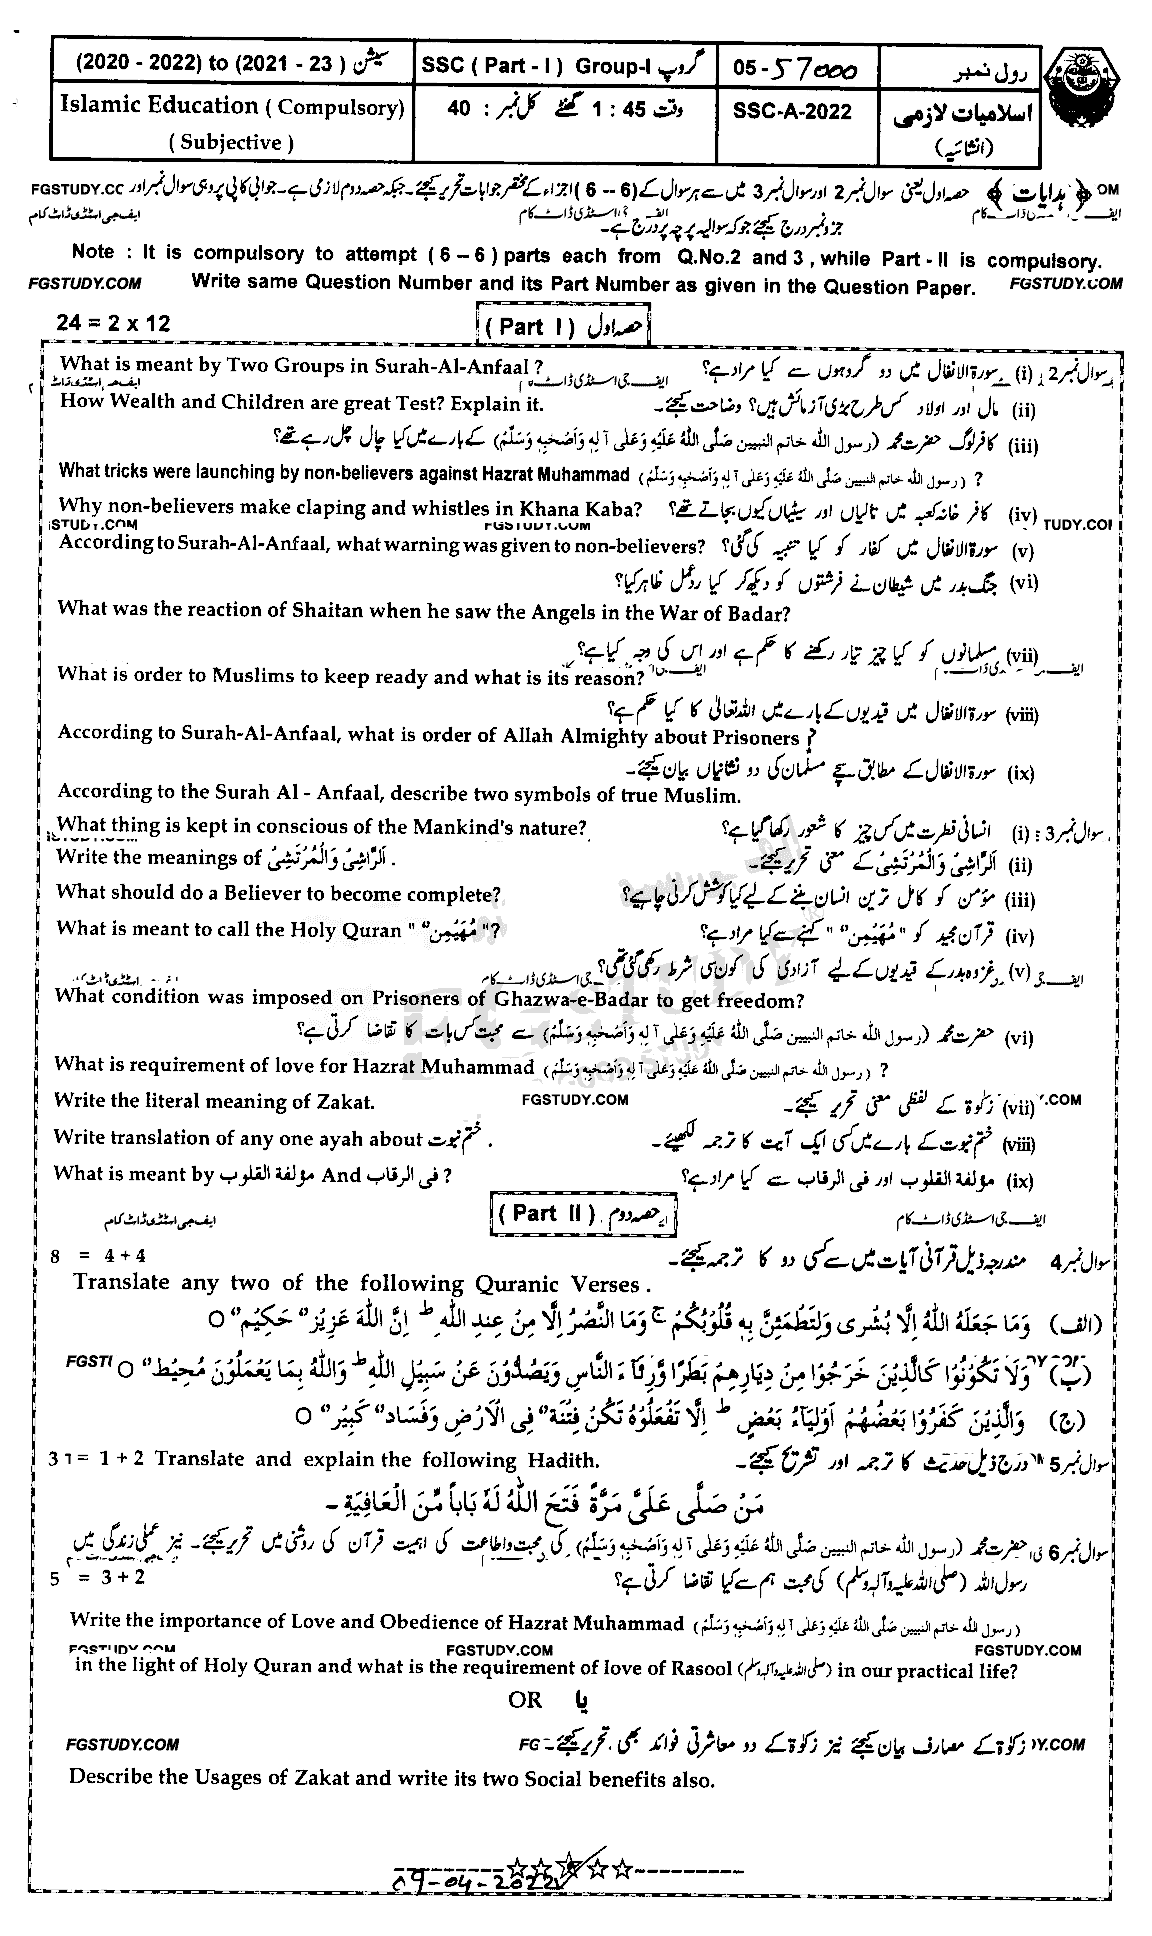 (2020 - 2022) to (2021 - 23 ) سیشن SSC ( Part - I ) Group-I گروپ 05 - 57000 رول نمبر
Islamic Education ( Compulsory) 40 : کل نمبر 1 : 45 وقت گھنٹے SSC-A-2022 اسلامیات لازمی
( Subjective ) (انشائیہ)
﴿ ہدایات ﴾ حصہ اول یعنی سوال نمبر 2 اور سوال نمبر 3 میں سے ہر سوال کے (6 – 6) اجزاء کے مختصر جوابات تحریر کیجئے۔ جبکہ حصہ دوم لازمی ہے۔ جوابی کاپی پر وہی سوال نمبر اور FGSTUDY.CC
جزو نمبر درج کیجئے جو کہ سوالیہ پرچہ پر درج ہے۔
Note : It is compulsory to attempt ( 6 – 6 ) parts each from Q.No.2 and 3 , while Part - II is compulsory.
FGSTUDY.COM Write same Question Number and its Part Number as given in the Question Paper. FGSTUDY.COM
24 = 2 x 12 ( Part I ) حصہ اول
What is meant by Two Groups in Surah-Al-Anfaal ? سوال نمبر 2 (i) سورۃ الانفال میں دو گروہوں سے کیا مراد ہے؟
How Wealth and Children are great Test? Explain it. (ii) مال اور اولاد کس طرح بڑی آزمائش ہیں؟ وضاحت کیجئے۔
(iii) کافر لوگ حضرت محمد (رسول اللہ خاتم النبیین صَلَّی اللہُ عَلَیْہِ وَعَلٰی آلِہٖ وَاَصْحٰبِہٖ وَسَلَّمَ) کے بارے میں کیا چال چل رہے تھے؟
What tricks were launching by non-believers against Hazrat Muhammad (رسول اللہ خاتم النبیین صَلَّی اللہُ عَلَیْہِ وَعَلٰی آلِہٖ وَاَصْحٰبِہٖ وَسَلَّمَ) ?
Why non-believers make claping and whistles in Khana Kaba? (iv) کافر خانہ کعبہ میں تالیاں اور سیٹیاں کیوں بجاتے تھے؟
ISTUDY.COM FGSTUDY.COM TUDY.COM
According to Surah-Al-Anfaal, what warning was given to non-believers? (v) سورۃ الانفال میں کفار کو کیا تنبیہ کی گئی؟
(vi) جنگ بدر میں شیطان نے فرشتوں کو دیکھ کر کیا ردعمل ظاہر کیا؟
What was the reaction of Shaitan when he saw the Angels in the War of Badar?
(vii) مسلمانوں کو کیا چیز تیار رکھنے کا حکم ہے اور اس کی وجہ کیا ہے؟
What is order to Muslims to keep ready and what is its reason?
(viii) سورۃ الانفال میں قیدیوں کے بارے میں اللہ تعالیٰ کا کیا حکم ہے؟
According to Surah-Al-Anfaal, what is order of Allah Almighty about Prisoners ?
(ix) سورۃ الانفال کے مطابق سچے مسلمان کی دو نشانیاں بیان کیجئے۔
According to the Surah Al - Anfaal, describe two symbols of true Muslim.
What thing is kept in conscious of the Mankind's nature? سوال نمبر 3 : (i) انسانی فطرت میں کس چیز کا شعور رکھا گیا ہے؟
Write the meanings of اَلرَّاشِیْ وَالْمُرْتَشِیْ . (ii) اَلرَّاشِیْ وَالْمُرْتَشِیْ کے معنی تحریر کیجئے۔
What should do a Believer to become complete? (iii) مؤمن کو کامل ترین انسان بننے کے لیے کیا کوشش کرنی چاہیے؟
What is meant to call the Holy Quran " مُهَيْمِنٌ "? (iv) قرآن مجید کو " مُهَيْمِنٌ " کہنے سے کیا مراد ہے؟
(v) غزوہ بدر کے قیدیوں کے لیے آزادی کی کون سی شرط رکھی گئی تھی؟
What condition was imposed on Prisoners of Ghazwa-e-Badar to get freedom?
(vi) حضرت محمد (رسول اللہ خاتم النبیین صَلَّی اللہُ عَلَیْہِ وَعَلٰی آلِہٖ وَاَصْحٰبِہٖ وَسَلَّمَ) سے محبت کس بات کا تقاضا کرتی ہے؟
What is requirement of love for Hazrat Muhammad (رسول اللہ خاتم النبیین صَلَّی اللہُ عَلَیْہِ وَعَلٰی آلِہٖ وَاَصْحٰبِہٖ وَسَلَّمَ) ?
Write the literal meaning of Zakat. FGSTUDY.COM (vii) زکوٰۃ کے لفظی معنی تحریر کیجئے۔ .COM
Write translation of any one ayah about ختم نبوت . (viii) ختم نبوت کے بارے میں کسی ایک آیت کا ترجمہ لکھیئے۔
What is meant by مؤلفة القلوب And فی الرقاب ? (ix) مؤلفة القلوب اور فی الرقاب سے کیا مراد ہے؟
ایف جی اسٹڈی ڈاٹ کام ( Part II ) حصہ دوم ایف جی اسٹڈی ڈاٹ کام
8 = 4 + 4 سوال نمبر 4 مندرجہ ذیل قرآنی آیات میں سے کسی دو کا ترجمہ کیجئے۔
Translate any two of the following Quranic Verses .
(الف) وَمَا جَعَلَهُ اللّٰهُ اِلَّا بُشْرٰى وَلِتَطْمَئِنَّ بِهٖ قُلُوْبُكُمْ ۚ وَمَا النَّصْرُ اِلَّا مِنْ عِنْدِ اللّٰهِ ؕ اِنَّ اللّٰهَ عَزِيْزٌ حَكِيْمٌ O
(ب) وَلَا تَكُوْنُوْا كَالَّذِيْنَ خَرَجُوْا مِنْ دِيَارِهِمْ بَطَرًا وَّرِئَآءَ النَّاسِ وَيَصُدُّوْنَ عَنْ سَبِيْلِ اللّٰهِ ؕ وَاللّٰهُ بِمَا يَعْمَلُوْنَ مُحِيْطٌ O FGSTI
(ج) وَالَّذِيْنَ كَفَرُوْا بَعْضُهُمْ اَوْلِيَآءُ بَعْضٍ ؕ اِلَّا تَفْعَلُوْهُ تَكُنْ فِتْنَةٌ فِى الْاَرْضِ وَفَسَادٌ كَبِيْرٌ O
3 = 1 + 2 Translate and explain the following Hadith. سوال نمبر 5 درج ذیل حدیث کا ترجمہ اور تشریح کیجئے۔
مَنْ صَلّٰى عَلَىَّ مَرَّةً فَتَحَ اللّٰهُ لَهٗ بَاباً مِّنَ الْعَافِيَةِ ۔
سوال نمبر 6 حضرت محمد (رسول اللہ خاتم النبیین صَلَّی اللہُ عَلَیْہِ وَعَلٰی آلِہٖ وَاَصْحٰبِہٖ وَسَلَّمَ) کی محبت واطاعت کی اہمیت قرآن کی روشنی میں تحریر کیجئے۔ نیز عملی زندگی میں
5 = 3 + 2 رسول اللہ (صلی اللہ علیہ وآلہ وسلم) کی محبت ہم سے کیا تقاضا کرتی ہے؟
Write the importance of Love and Obedience of Hazrat Muhammad (رسول اللہ خاتم النبیین صَلَّی اللہُ عَلَیْہِ وَعَلٰی آلِہٖ وَاَصْحٰبِہٖ وَسَلَّمَ)
FGSTUDY.COM FGSTUDY.COM FGSTUDY.COM
in the light of Holy Quran and what is the requirement of love of Rasool (صلی اللہ علیہ وآلہ وسلم) in our practical life?
OR یا
FGSTUDY.COM زکوٰۃ کے مصارف بیان کیجئے نیز زکوٰۃ کے دو معاشرتی فوائد بھی تحریر کیجئے۔ FG DY.COM
Describe the Usages of Zakat and write its two Social benefits also.
09-04-2022